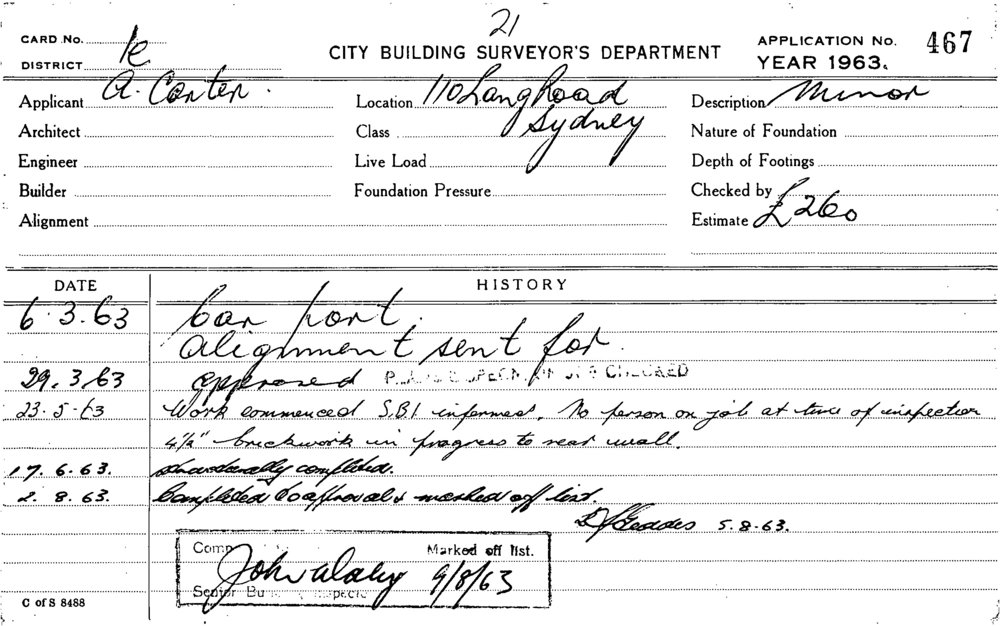 21
CARD No.
DISTRICT
CITY BUILDING SURVEYOR'S DEPARTMENT
APPLICATION No. 467
YEAR 1963.
Applicant A. Carter. Location 110 Lang Road Description Minor
Architect Class Sydney Nature of Foundation
Engineer Live Load Depth of Footings
Builder Foundation Pressure Checked by
Alignment Estimate £260
DATE HISTORY
6.3.63 Car port.
Alignment sent for.
29.3.63 approved CHECKED
23.5.63 Work commenced S.B.I. informed. No person on job at time of inspection
4½" brickwork in progress to rear wall.
17.6.63. structurally completed.
2.8.63. Completed to approval & marked off list.
5.8.63.
Comp Marked off list.
John Daley 9/8/63
Senior
C of S 8488